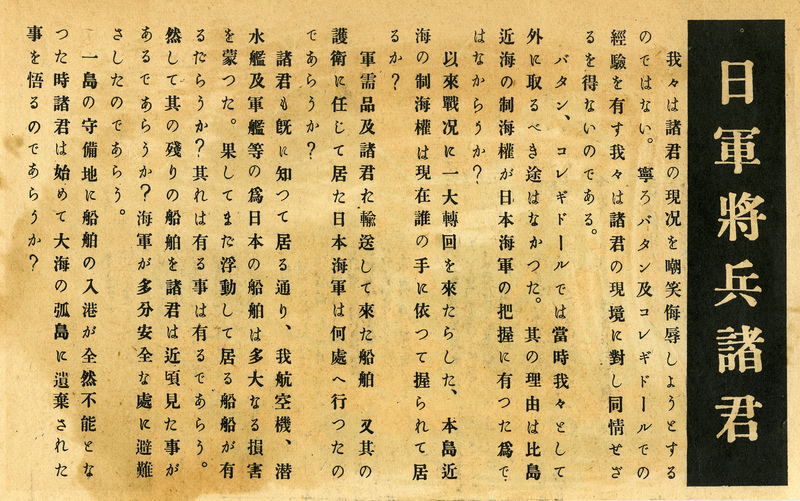 日軍將兵諸君
我々は諸君の現況を嘲笑侮辱しようとする
のではない。寧ろバタン及コレギドールでの
經驗を有す我々は諸君の現境に對し同情せざ
るを得ないのである。
バタン、コレギドールでは當時我々として
外に取るべき途はなかつた。其の理由は比島
近海の制海權が日本海軍の把握に有つた爲で
はなからうか？
以來戰況に一大轉回を來たらした、本島近
海の制海權は現在誰の手に依つて握られて居
るか？
軍需品及諸君た輸送して來た船舶　又其の
護衛に任じて居た日本海軍は何處へ行つたの
であらうか？
諸君も既に知つて居る通り、我航空機、潜
水艦及軍艦等の爲日本の船舶は多大なる損害
を蒙つた。果してまだ浮動して居る船船が有
るだらうか？其れは有る事は有るであらう。
然して其の殘りの船舶を諸君は近頃見た事が
あるであらうか？海軍が多分安全な處に避難
さしたのであらう。
一島の守備地に船舶の入港が全然不能とな
つた時諸君は始めて大海の弧島に遺棄された
事を悟るのであらうか？